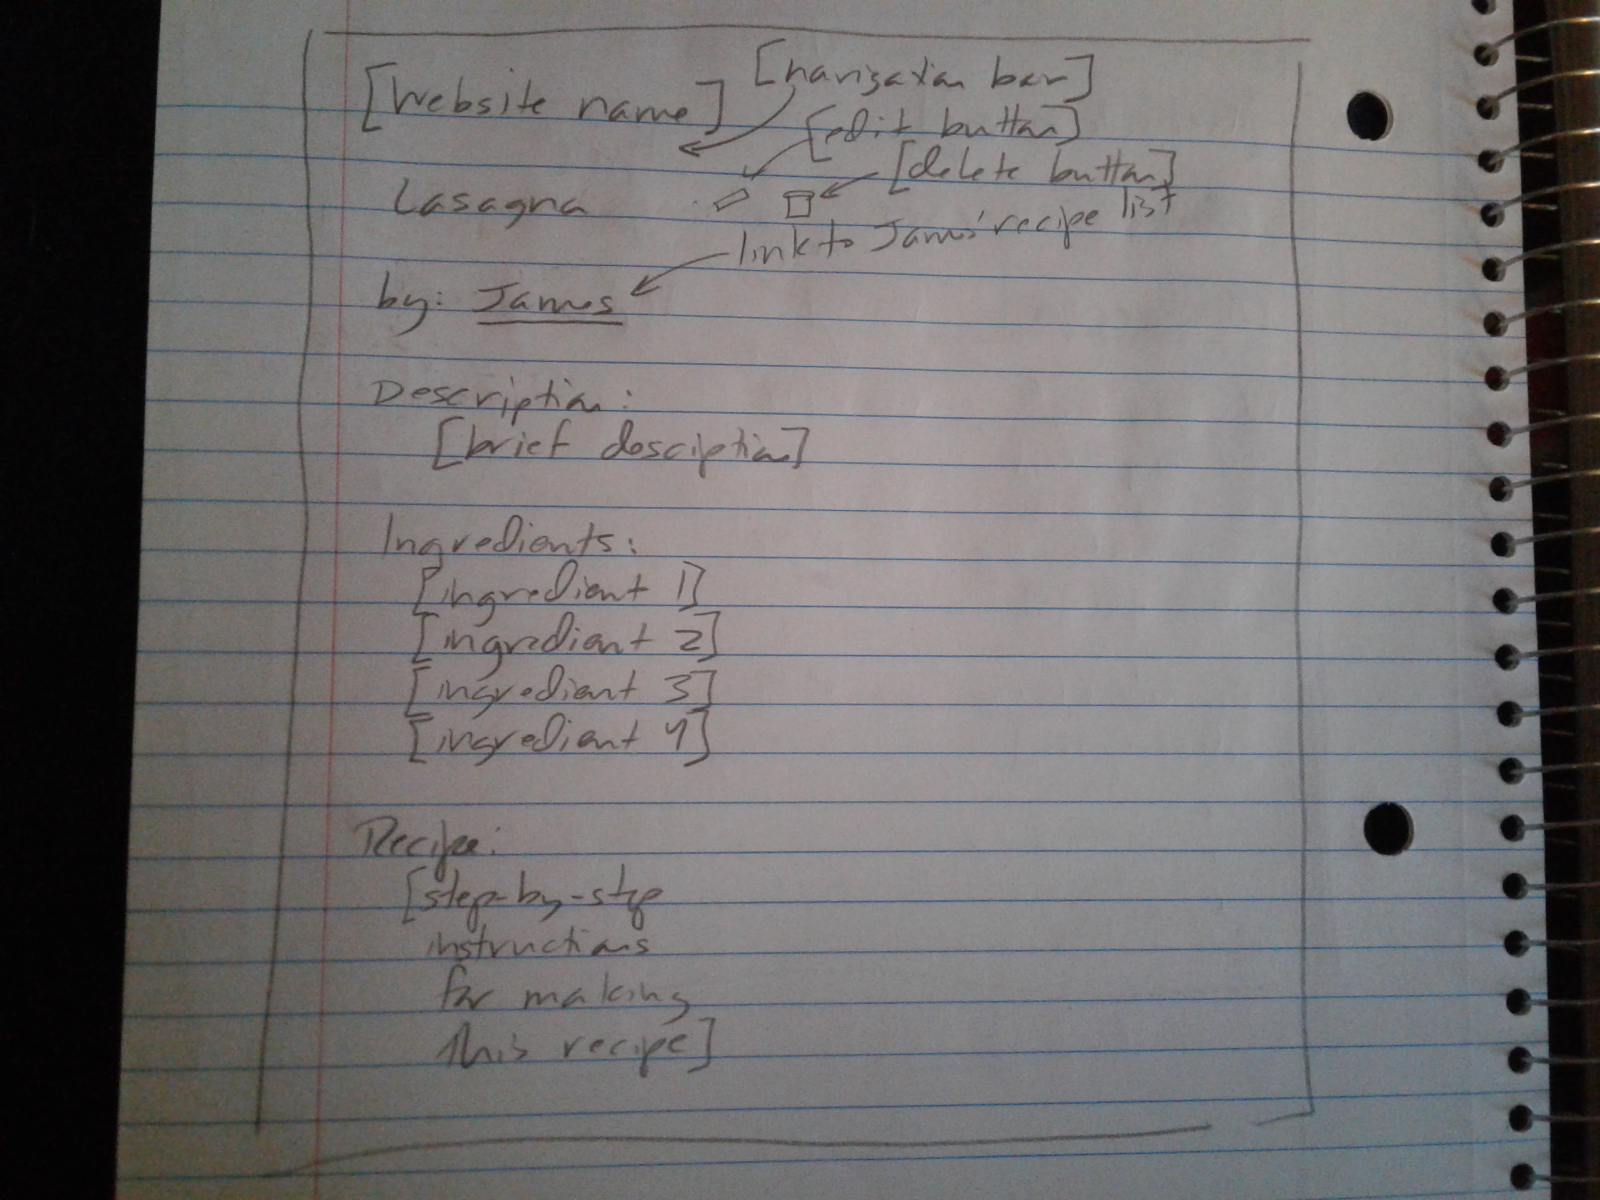 [Website name] [navigation bar]
[edit button]
Lasagna [delete button]
link to James' recipe list
by: James
Description:
[brief desciption]
Ingredients:
[ingredient 1]
[ingredient 2]
[ingredient 3]
[ingredient 4]
Recipe:
[step-by-step
instructions
for making
this recipe]